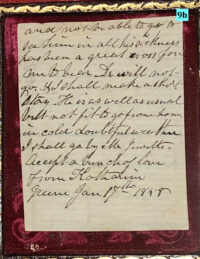 9b
and not be able to get to
see him in all his sickness
has been a great cross for
me to bear. Dr will not
go. & I shall make a short
stay. He is as well as usual
but not fit to go from home
in cold doubtful weather
I shall go by Mr
Accept a bunch of love
from Katharine
Greene Jan 17th